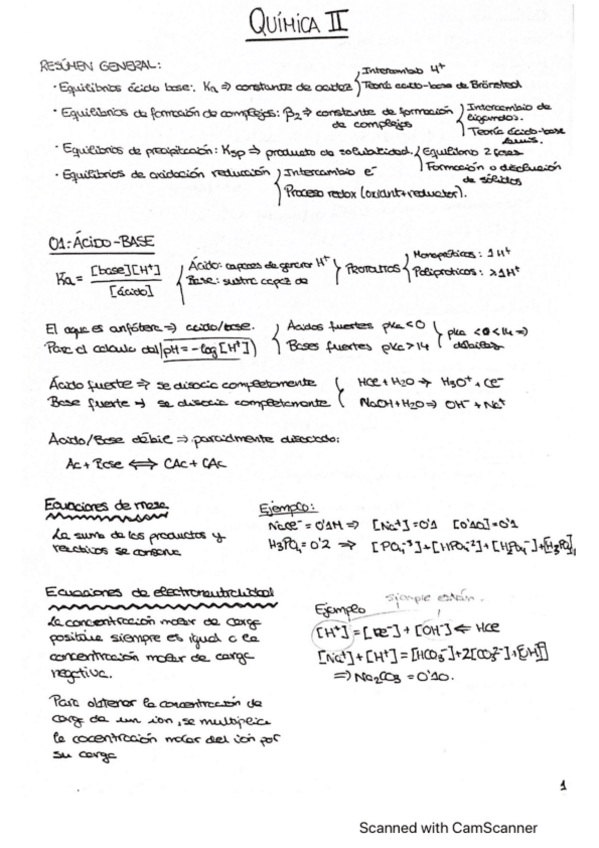 QUÍMICA II
RESÚMEN GENERAL:
· Equilibrios ácido base: Ka ⇒ constante de acidez { Intercambio H⁺
Teoría ácido-base de Brönsted
· Equilibrios de formación de complejos: β₂ ⇒ constante de formación de complejos { Intercambio de ligandos.
Teoría ácido-base Lewis.
· Equilibrios de precipitación: Ksp ⇒ producto de solubilidad. { Equilibrio 2 fases
Formación o disolución de sólidos
· Equilibrios de oxidación reducción { Intercambio e⁻
Proceso redox (oxidant+reductor).
01: ÁCIDO-BASE
Ka = [base][H⁺] / [ácido] { Ácido: capaces de generar H⁺
Base: sustnc capaz de } PROTOLITOS { Monopróticos: 1H⁺
Polipróticos: >1H⁺
El agua es anfótera ⇒ acido/base. { Acidos fuertes pKa<0
Para el calculo del pH = -log[H⁺] { Bases fuertes pKa>14 } pKa <0<14 ⇒ débiles
Ácido fuerte ⇒ se disocia completamente { HCl + H₂O → H₃O⁺ + Cl⁻
Base fuerte ⇒ se disocia completamente { NaOH + H₂O ⇒ OH⁻ + Na⁺
Acido/Base débil ⇒ parcialmente disociado:
Ac + Base ⟺ CAc + CAc
Ecuaciones de masa
La suma de los productos y
reactivos se conserva
Ejemplo:
NaCl⁻ = 0'1M ⇒ [Na⁺] = 0'1 [0'10] = 0'1
H₃PO₄ = 0'2 ⇒ [PO₄⁻³]+[HPO₄⁻²]+[H₂PO₄⁻]+[H₃PO₄]
Ecuaciones de electroneutralidad
La concentración molar de carga
positiva siempre es igual a la
concentración molar de carga
negativa.
Para obtener la concentración de
carga de un ion, se multiplica
la cocentración molar del ion por
su carga
siempre están.
Ejemplo
[H⁺] = [Cl⁻] + [OH⁻] ⇐ HCl
[Na⁺] + [H⁺] = [HCO₃⁻] + 2[CO₃²⁻] + [OH⁻]
⇒ Na₂CO₃ = 0'10.
1
Scanned with CamScanner